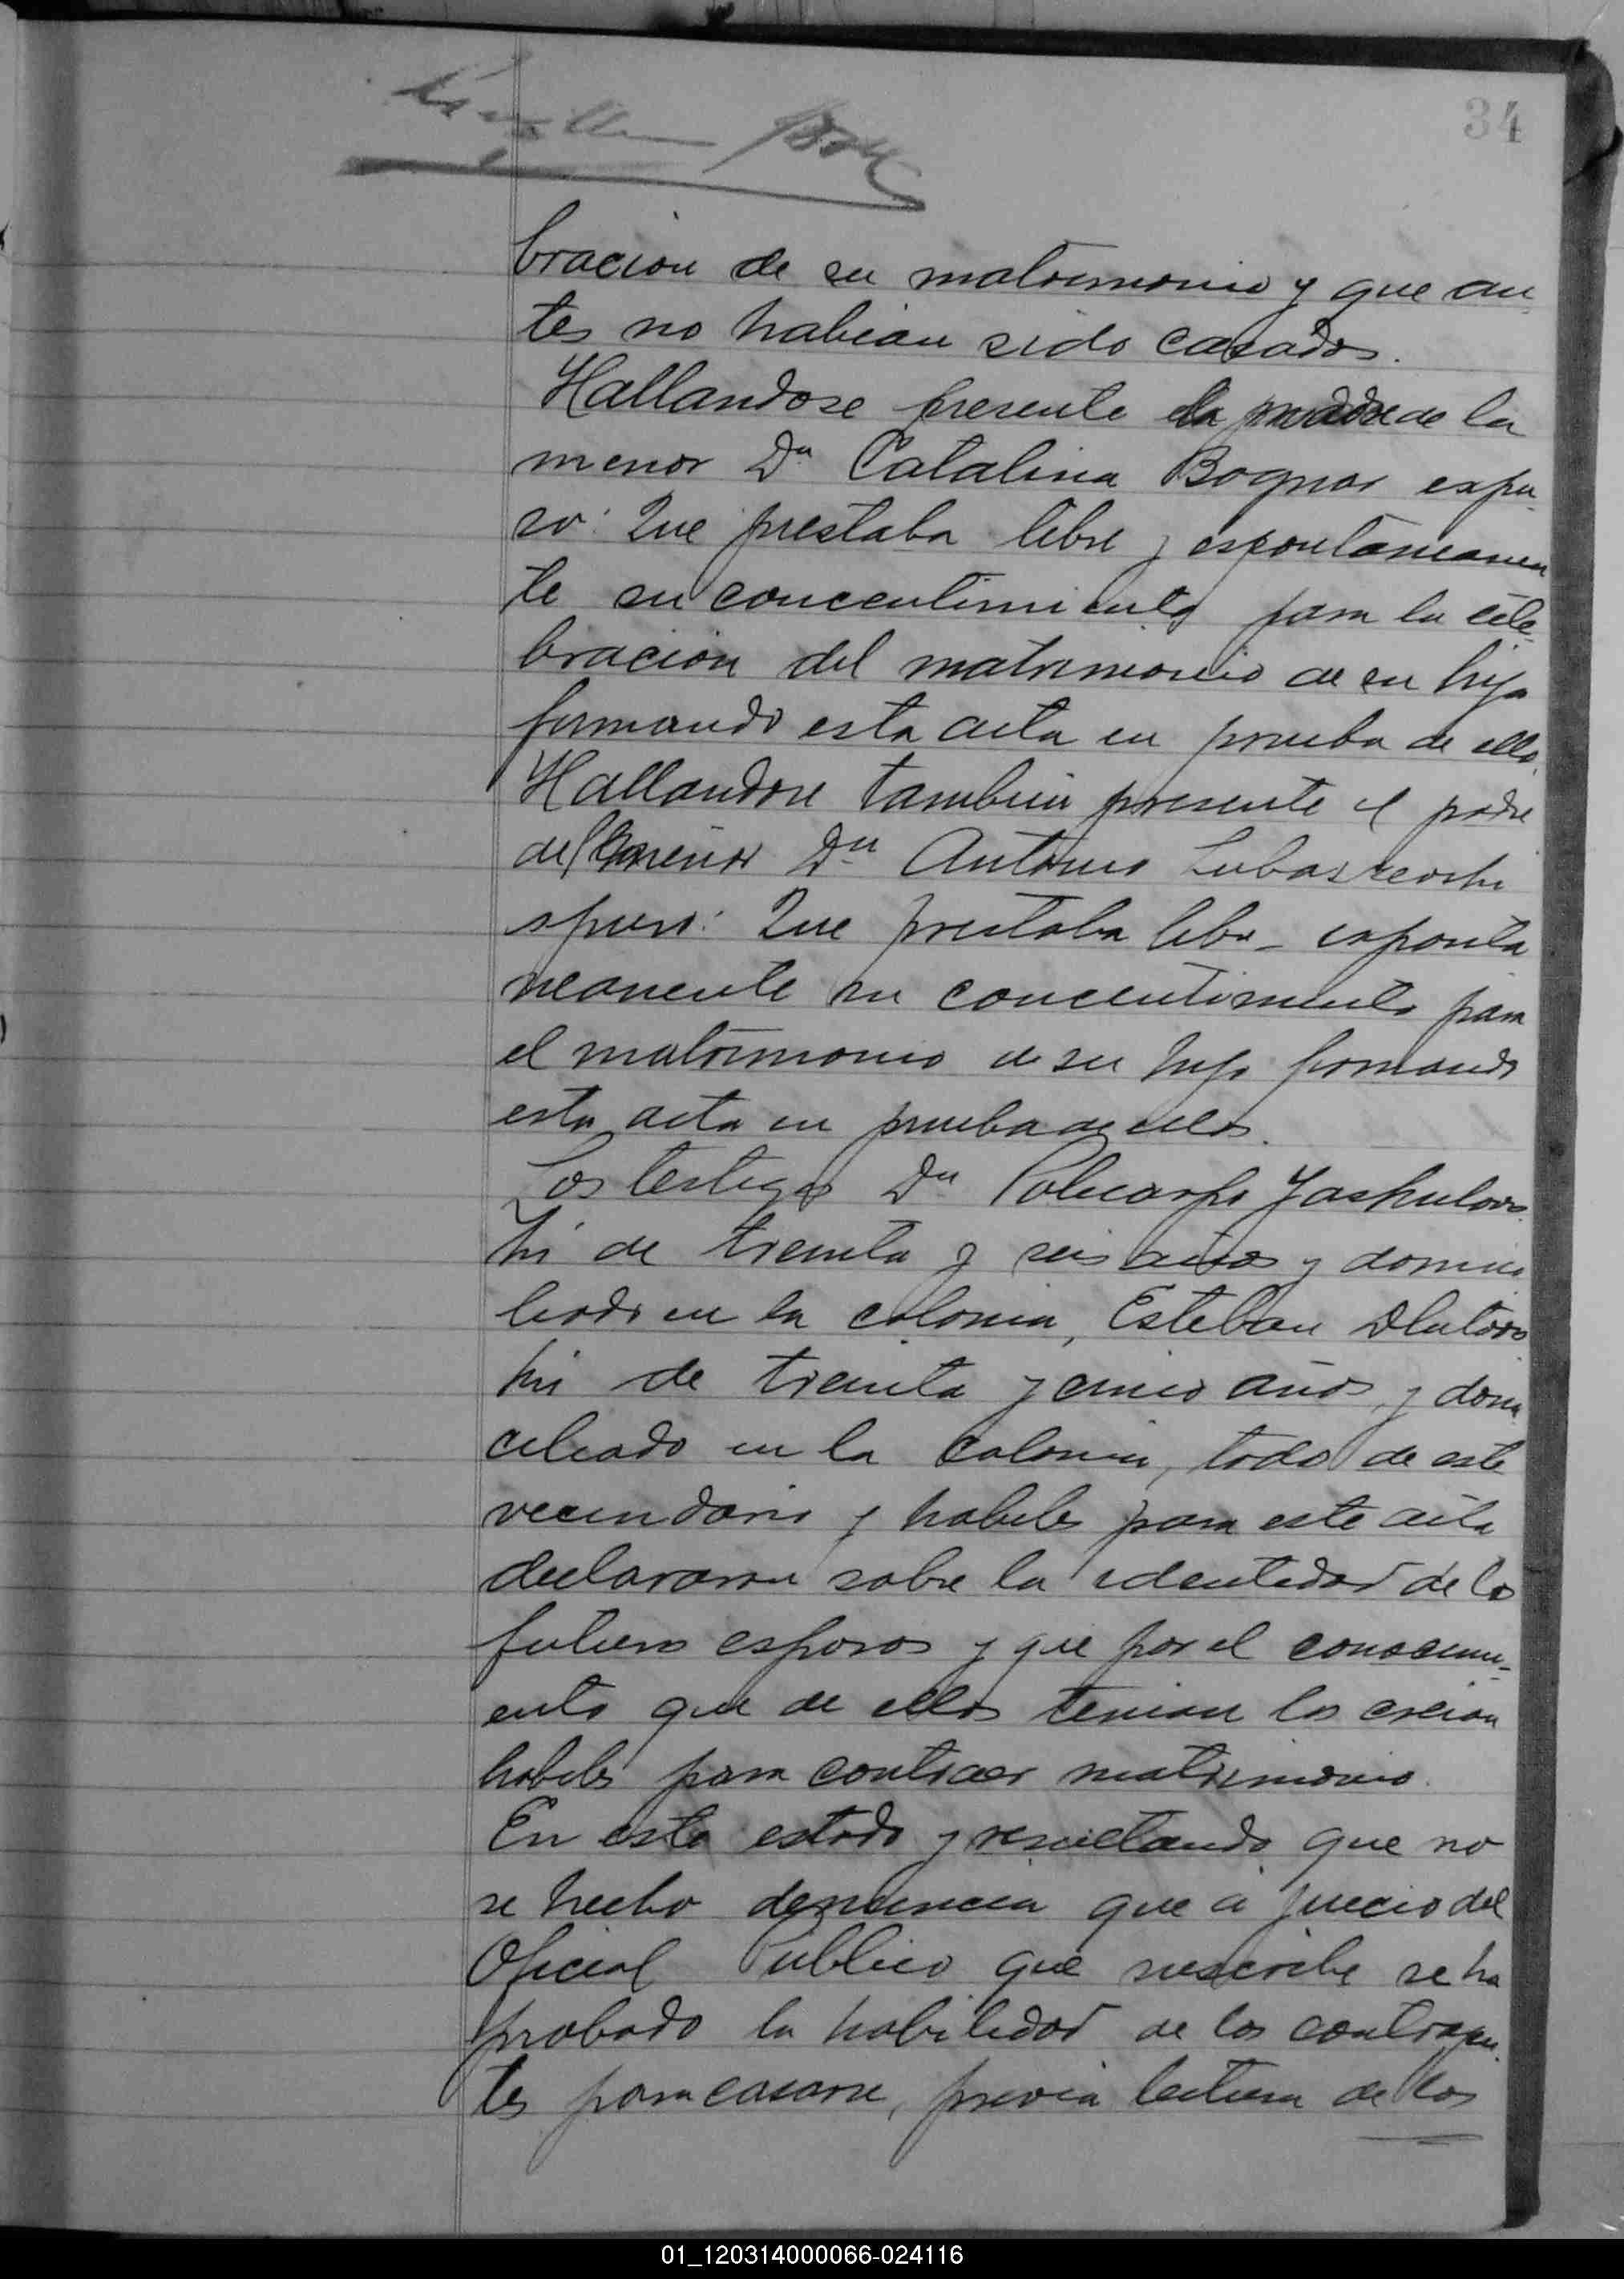 34
bracion de su matrimonio y que an
tes no habian sido casados.
Hallandose presente la madre de la
menor Dna Catalina Bognar espu
so: Que prestaba libre y espontaneamen
te su concentimiento para la cele
bracion del matrimonio de su hija
firmando esta acta en prueba de ello.
Hallandose tambien presente el padre
del menor Dn Antonio
spuso: Que prestaba libre esponta
neamente su concentimiento para
el matrimonio de su hijo firmando
esta acta en prueba de ello.
Los testigos Dn Policarpo Jaskulows
ki de treinta y seis años y domici
liado en la colonia, Esteban Dlutows
ki de treinta y cinco años, y domi
ciliado en la colonia, todos de este
vecindario y habiles para este acto
declararon sobre la identidad de los
futuros esposos y que por el conocimi-
ento que de ellos tenian los creian
habiles para contraer matrimonio.
En este estado y resultando que no
se hecho denuncia que a juicio del
Oficial Publico que suscribe se ha
probado la habilidad de los contrayen
tes para casarse, previa lectura de los
01_120314000066-024116